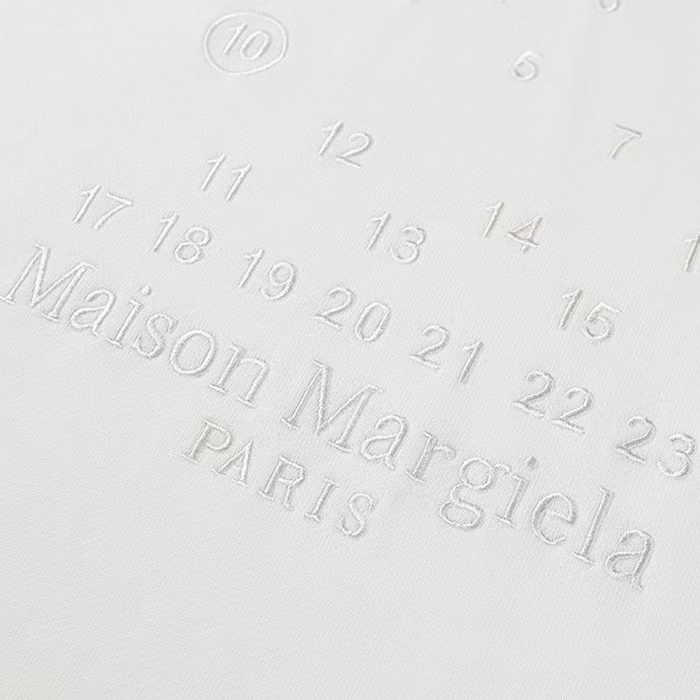 5
10
7
12
11
14
13
15
17 18 19 20 21 22 23
Maison Margiela
PARIS